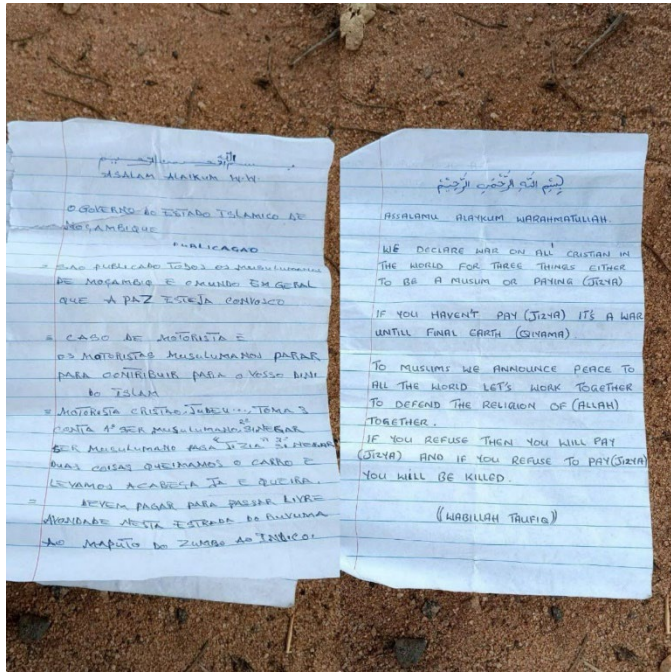 بسم الله الرحمن الرحيم
ASALAM ALAIKUM W.W.
O GOVERNO DO ESTADO ISLAMICO DE
MOÇAMBIQUE
PUBLICAGAO
= SAO PUBLICADO TODOS OS MUSULUMANOS
DE MOÇAMBIQ E O MUNDO EM GERAL
QUE A PAZ ESTEJA CONVOSCO
= CASO DE MOTORISTA E
OS MOTORISTAS MUSULUMANOS PARAR
PARA CONTRIBUIR PARA O VOSSO DINI
DO ISLAM
= MOTORISTA CRISTÃO, JUDEU..., TOMA 3
CONTA 1º SER MUSULUMANO, 2º NEGAR
SER MUSULUMANO PAGA "JIZIA" 3º NEGAR
DUAS COISAS QUEIMAMOS O CARRO E
LEVAMOS A CABEÇA JA E QUEIRA.
= DEVEM PAGAR PARA PASSAR LIVRE
NESTA ESTRADA DO RUVUMA
AO MAPUTO DO ZUMBO AO INDICO.
بسم الله الرحمن الرحيم
ASSALAMU ALAYKUM WARAHMATULLAH.
WE DECLARE WAR ON ALL CRISTIAN IN
THE WORLD FOR THREE THINGS EITHER
TO BE A MUSLIM OR PAYING (JIZYA)
IF YOU HAVEN'T PAY (JIZYA) IT'S A WAR
UNTILL FINAL EARTH (QIYAMA)
TO MUSLIMS WE ANNOUNCE PEACE TO
ALL THE WORLD LET'S WORK TOGETHER
TO DEFEND THE RELIGION OF (ALLAH)
TOGETHER.
IF YOU REFUSE THEN YOU WILL PAY
(JIZYA) AND IF YOU REFUSE TO PAY (JIZYA)
YOU WILL BE KILLED.
((WABILLAH TAUFIQ))